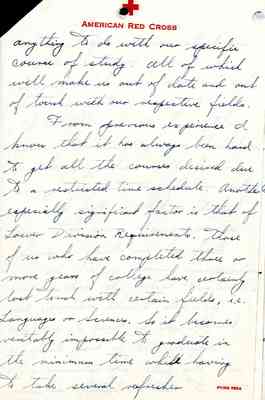 AMERICAN RED CROSS
anything to do with our specific
course of study. All of which
will make us out of date and out
of touch with our respective fields.
From previous experience I
know that it has always been hard
to get all the courses desired due
to a restricted time schedule. Another
especially significant factor is that of
Lower Division Requirements. Those
of us who have completed three or
more years of college have certainly
lost touch with certain fields, i.e.
Languages or Sciences. So it becomes
veritably impossible to graduate in
the minimum time while having
to take several refresher